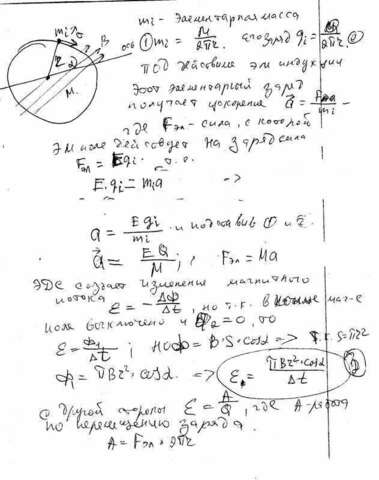 mᵢ - Элементарная масса
ось ① mᵢ = M/2πr. его заряд qᵢ = Q/2πr ②
под действием эм индукции
этот элементарный заряд
получает ускорение a⃗ = Fэл/mᵢ -
где Fэл - сила, с которой
Эм поле действует на заряд сила
Fэл = Eqᵢ. т.е.
E·qᵢ = mᵢa =>
a = Eqᵢ/mᵢ и подставив ① и ②
a⃗ = EQ/M ; Fэл = Ma
ЭДС создает изменение магнитного
потока ε = - ΔФ/Δt, но т.к. в конце маг-е
поле выключено и Ф₂ = 0, то
ε = Ф₁/Δt ; но Ф = B·S·cosα => т.к. S = πr²
Ф₁ = πBr²·cosα. => ε = πBr²·cosα/Δt ③
С другой стороны ε = A/Q, где A - работа
по перемещению заряда.
A = Fэл · 2πr